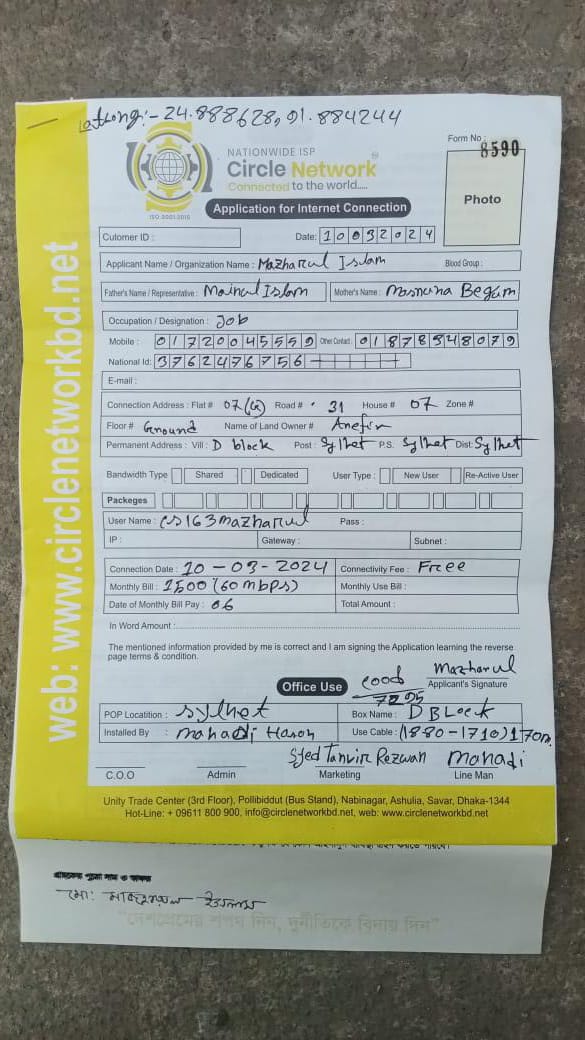 Latlong:- 24.888628, 91.884244
NATIONWIDE ISP
Circle Network
Connected to the world.....
ISO 9001:2015
Form No :
8590
Photo
Application for Internet Connection
Cutomer ID :
Date: 10032024
Applicant Name / Organization Name : Mazharul Islam Blood Group :
Father's Name / Representative : Mainul Islam Mother's Name : Begum
Occupation / Designation : Job
Mobile : 01720045559 Other Contact : 01878348079
National Id: 3762476756
E-mail :
Connection Address : Flat # 07(G) Road # 31 House # 07 Zone #
Floor # Ground Name of Land Owner #
Permanent Address : Vill : D block Post : Sylhet P.S. Sylhet Dist: Sylhet
Bandwidth Type Shared Dedicated User Type : New User Re-Active User
Packeges
User Name : cs163mazharul Pass :
IP : Gateway : Subnet :
Connection Date : 10-03-2024 Connectivity Fee : Free
Monthly Bill : 1500 (60 mbps) Monthly Use Bill :
Date of Monthly Bill Pay : 06 Total Amount :
In Word Amount :
The mentioned information provided by me is correct and I am signing the Application learning the reverse
page terms & condition.
Mazharul
Office Use
Applicant's Signature
POP Locatition : Sylhet Box Name : D BLock
Installed By : mahadi Hason Use Cable : (1880-1710) 170m
Syed Tanvir Rezwan Mahadi
C.O.O Admin Marketing Line Man
Unity Trade Center (3rd Floor), Pollibiddut (Bus Stand), Nabinagar, Ashulia, Savar, Dhaka-1344
Hot-Line: + 09611 800 900, info@circlenetworkbd.net, web: www.circlenetworkbd.net
web: www.circlenetworkbd.net
মো: ইসলাম
"দেশপ্রেমের শপথ নিন, দুর্নীতিকে বিদায় দিন"